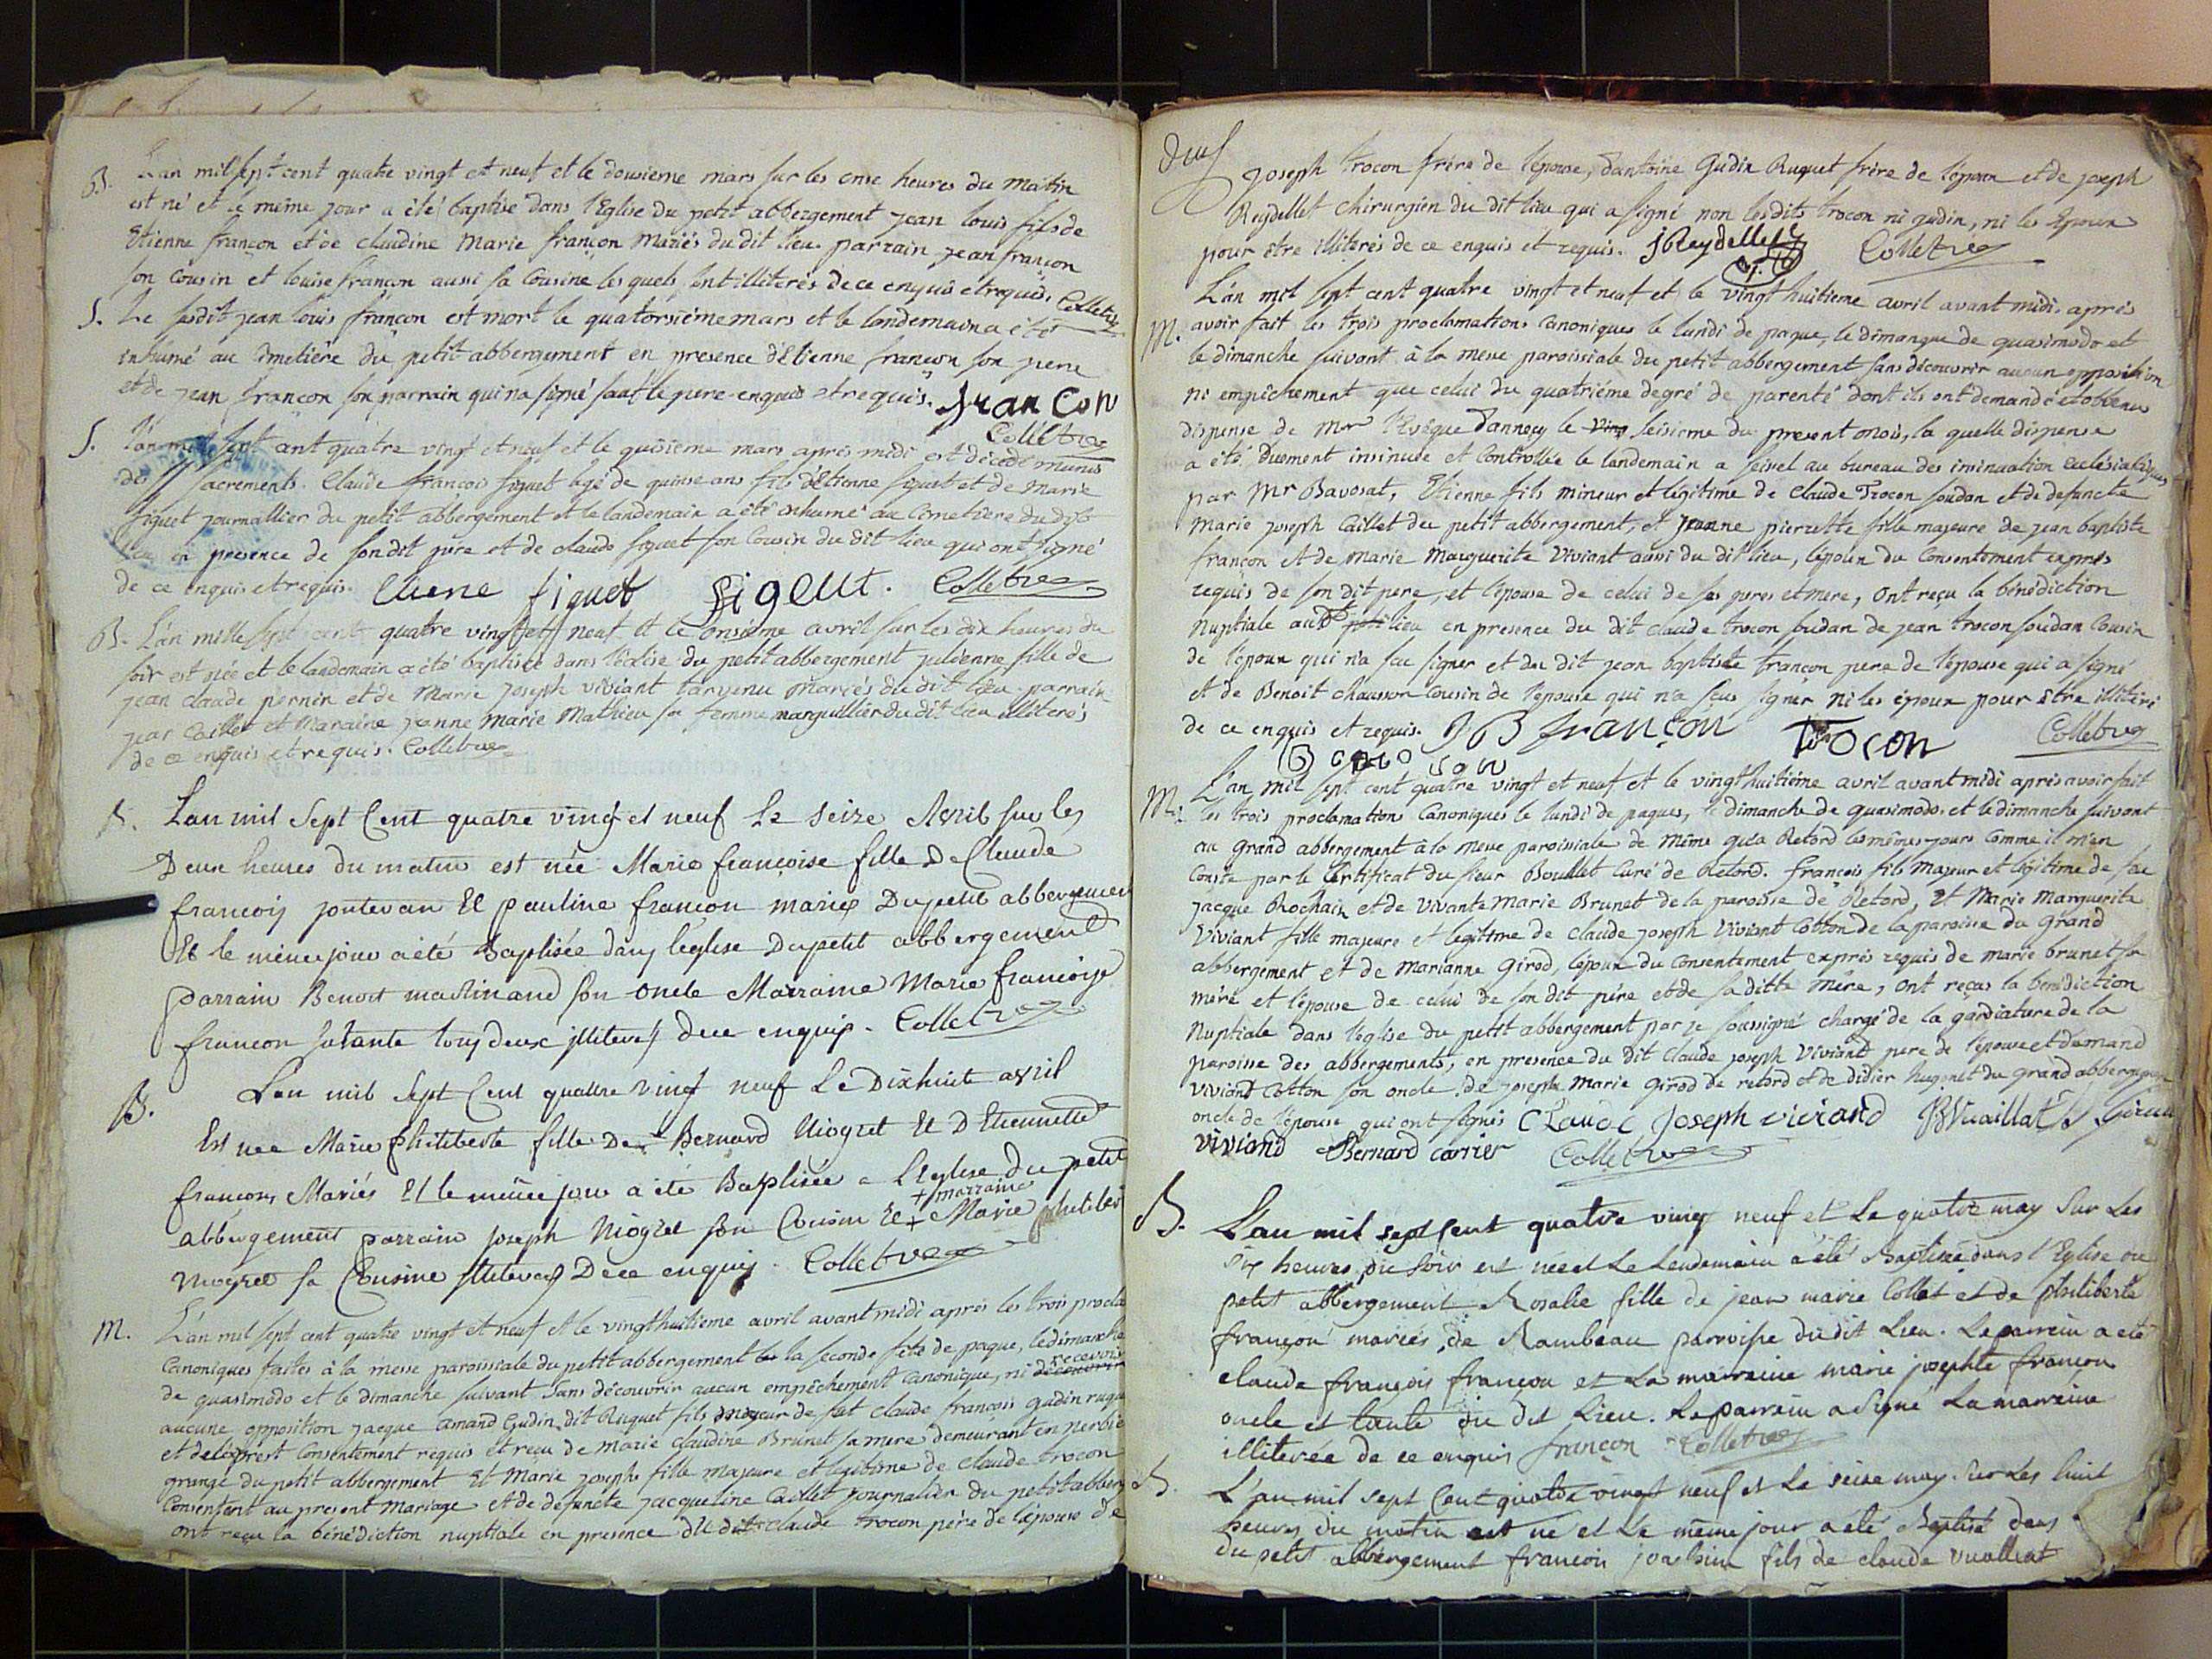 B. L'an mil sept cent quatre vingt et neuf et le dousieme mars sur les onse heures du matin
est né et le même jour a été baptise dans l'Eglise du petit abbergement jean louis fils de
Etienne françon et de claudine Marie françon Mariés du dit lieu. parrain jean françon
son Cousin et louise françon aussi sa Cousine les quels sont illiterés de ce enquis et requis. Colletrez
S. Le susdit jean louis françon est mort le quatorsième mars et le landemain a été
inhumé au cmetière du petit abbergement en presence d'Etienne françon son pere
et de jean françon son parrain qui na signé sauf le pere enquis et requis. françon
Colletrez
S. l'an mil sept cent quatre vingt et neuf et le quisième mars après midi est décédé munis
des sacrements Claude françois figuet agé de quinse ans fils d'Etienne figuet et de Marie
figuet journallier du petit abbergement et le landemain a été inhumé au Cimetiere du dit
lieu en presence de son dit père et de claude figuet son Cousin du dit lieu qui ont signé
de ce enquis et requis. Etiene figuet figeut. Colletrez
B. L'an mille sept cent quatre vingt et neuf et le onsième avril sur les dix heures du
soir est née et le landemain a été baptisée dans l'Eglise du petit abbergement julienne fille de
jean claude pernin et de Marie Joseph viviant tarvenu Mariés du dit lieu. parrain
jean Caillet et Maraine jeanne Marie Mathieu sa femme marguillier du dit lieu illiterés
de ce enquis et requis. Colletrez
B. Lan mil Sept Cent quatre vingt et neuf le seize Avril sur les
Deux heures du matin est née Marie françoise fille De Claude
françois jontevan Et pauline françon mariés Du petit abbergement
Et le même jour a été Baptisée dans l'eglise Du petit abbergement
parrain Benoit martinand son oncle Marraine Marie françoise
françon sa tante tous deux illiterés Dece enquis. Colletrez
B. Lan mil Sept Cent quattre vingt neuf le Dixhuit avril
Est nee Marie philiberte fille De Bernard Niogret Et D Etiennette
françon, Mariés Et le même jour a été Baptisée a L'eglise Du petit
+ marraine
abbergement parrain joseph Niogret son Cousin Et + Marie philiber
Niogret sa Cousine illiterés Dece enquis. Colletrez
M. L'an mil sept cent quatre vingt et neuf et le vingthuitieme avril avant midi après les trois procla
Canoniques faites à la messe paroissiale du petit abbergement la seconde fête de paque, le dimanche
de quasimodo et le dimanche suivant sans découvrir aucun empêchement Canonique, ni recevoir
aucune opposition jacque amand Gudin dit Ruquet fils majeur de fut claude françois gudin ruque
et de l'exprest Consentement requis et reçu de marie claudine Brunet sa mere demeurant en nerbie
grange du petit abbergement Et Marie josephe fille majeure et legitime de claude trocon
Consentent au present Mariage et de defuncte jacqueline Caillet journalier du petit abber
ont reçu la bénédiction nuptiale en presence du dit claude trocon père de l'épouse de
deux
joseph trocon frère de l'épouse, d'antoine Gudin Ruquet frère de l'époux et de joseph
Reydellet chirurgien du dit lieu qui a signé non les dits trocon ni gudin, ni les Epoux
pour être illiterés de ce enquis et requis. J Reydellet Colletrez
L'an mil sept cent quatre vingt et neuf et le vingt huitieme avril avant midi après
M. avoir fait les trois proclamations Canoniques le lundi de paque, le dimanque de quasimodo et
le dimanche suivant à la messe paroissiale du petit abbergement sans découvrir aucun opposition
ni empêchement que celui du quatriéme degré de parenté dont ils ont demandé et obtenu
dispense de Mgr l'Evêque d'annecy le ving seisieme du present mois, la quelle dispense
a été duement insinuée et Controllée le landemain a seisel au bureau des insinuation eclésiatiques
par Mr Bavosat, Etienne fils mineur et légitime de Claude Trocon soudan et de defuncte
Marie joseph Caillet du petit abbergement, et jeanne pierrette fille majeure de jean baptiste
françon et de Marie Marguerite Viviant aussi du dit lieu, l'époux du Consentement exprés
requis de son dit pere, et l'épouse de celui de ses peres et mere, ont reçu la bénédiction
Nuptiale au dt petit lieu en presence du dit claude trocon soudan de jean trocon soudan Cousin
de l'époux qui n'a seu signer et du dit jean baptiste françon pere de l'épouse qui a signé
et de Benoit chausson Cousin de l'épouse qui n'a seus signer ni les époux pour être illitéré
de ce enquis et requis. J B françon Trocon Colletrez
M. L'an mil sept cent quatre vingt et neuf et le vingthuitiéme avril avant midi après avoir fait
les trois proclamations Canoniques le lundi de paques, le dimanche de quasimodo. et le dimanche suivant
au grand abbergement à la Messe paroissiale de Même qu'a Retord les mêmes jours Comme il m'en
Conste par le Certificat du sieur Boullet Curé de Retord. françois fils Majeur et légitime de feu
jacque Rochaix et de vivante Marie Brunet de la paroisse de Retord, Et Marie Marguerite
Viviant fille majeure et legitime de Claude joseph Viviant Cotton de la paroisse du grand
abbergement et de Marianne Girod, l'époux du Consentement exprés requis de marie brunet sa
mère et l'épouse de celui de son dit père et de sa ditte Mère, ont reçus la bénédiction
Nuptiale dans l'église du petit abbergement par je soussigné chargé de la gardiature de la
paroisse des abbergements, en presence du dit Claude joseph Viviant pere de l'épouse et d'amand
Viviant Cotton son oncle, de joseph Marie Girod de retord et de didier hugonet du grand abbergement
oncle de l'épouse qui ont signés Claude Joseph viviand
viviand Bernard Carrier Colletrez
B. L'an mil sept cent quatre vingt neuf et le quatre may sur les
six heures du soir est née et le lendemain a été Baptisée dans l'Eglise du
petit abbergement Rosalie fille de jean marie Collet et de philiberte
françon mariés, de Rambeau parroisse du dit lieu. Le parrein a été
claude françois françon et la marreine marie josephte françon
oncle et tante du dit lieu. Le parrein a signé La marreine
illiterée de ce enquis françon Colletrez
B. L'an mil sept Cent quatre vingt neuf et le seise may sur les huit
heures du matin est né et le même jour a été Baptisé dans
du petit abbergement françois joachim fils de claude vuaillat